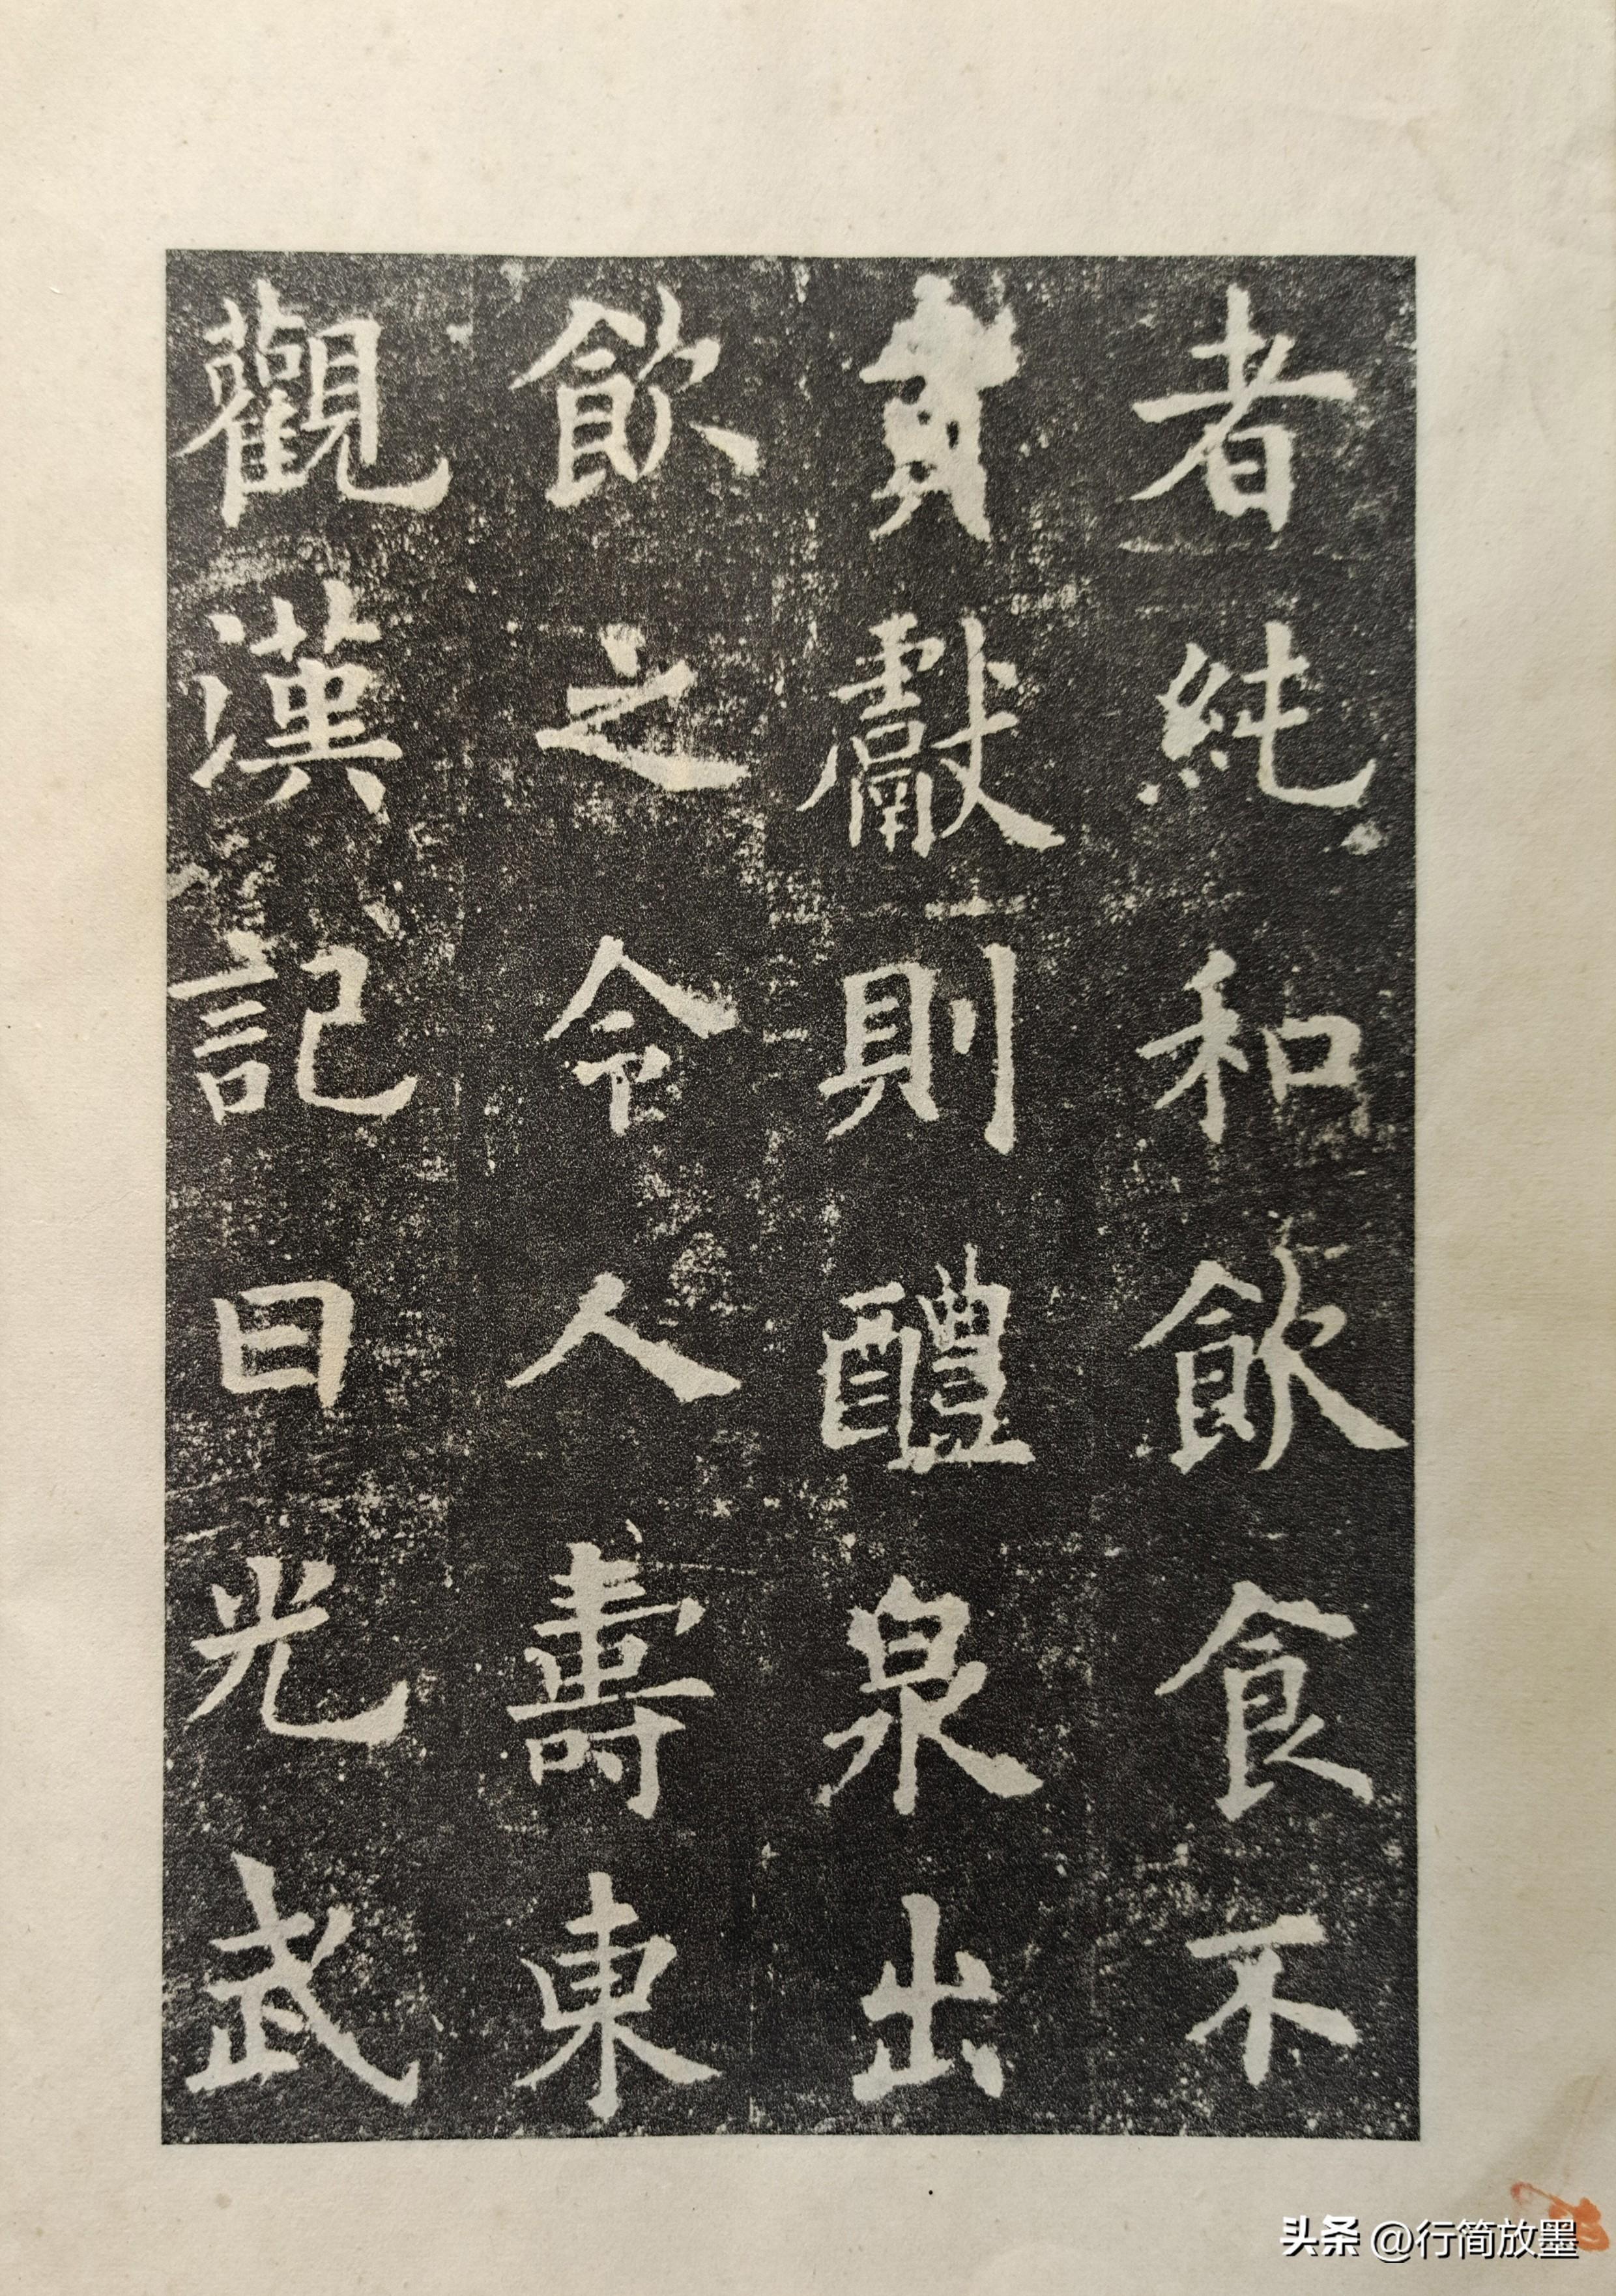 者純和飲食不
貢獻則醴泉出
飲之令人壽東
觀漢記曰光武
头条 @行简放墨